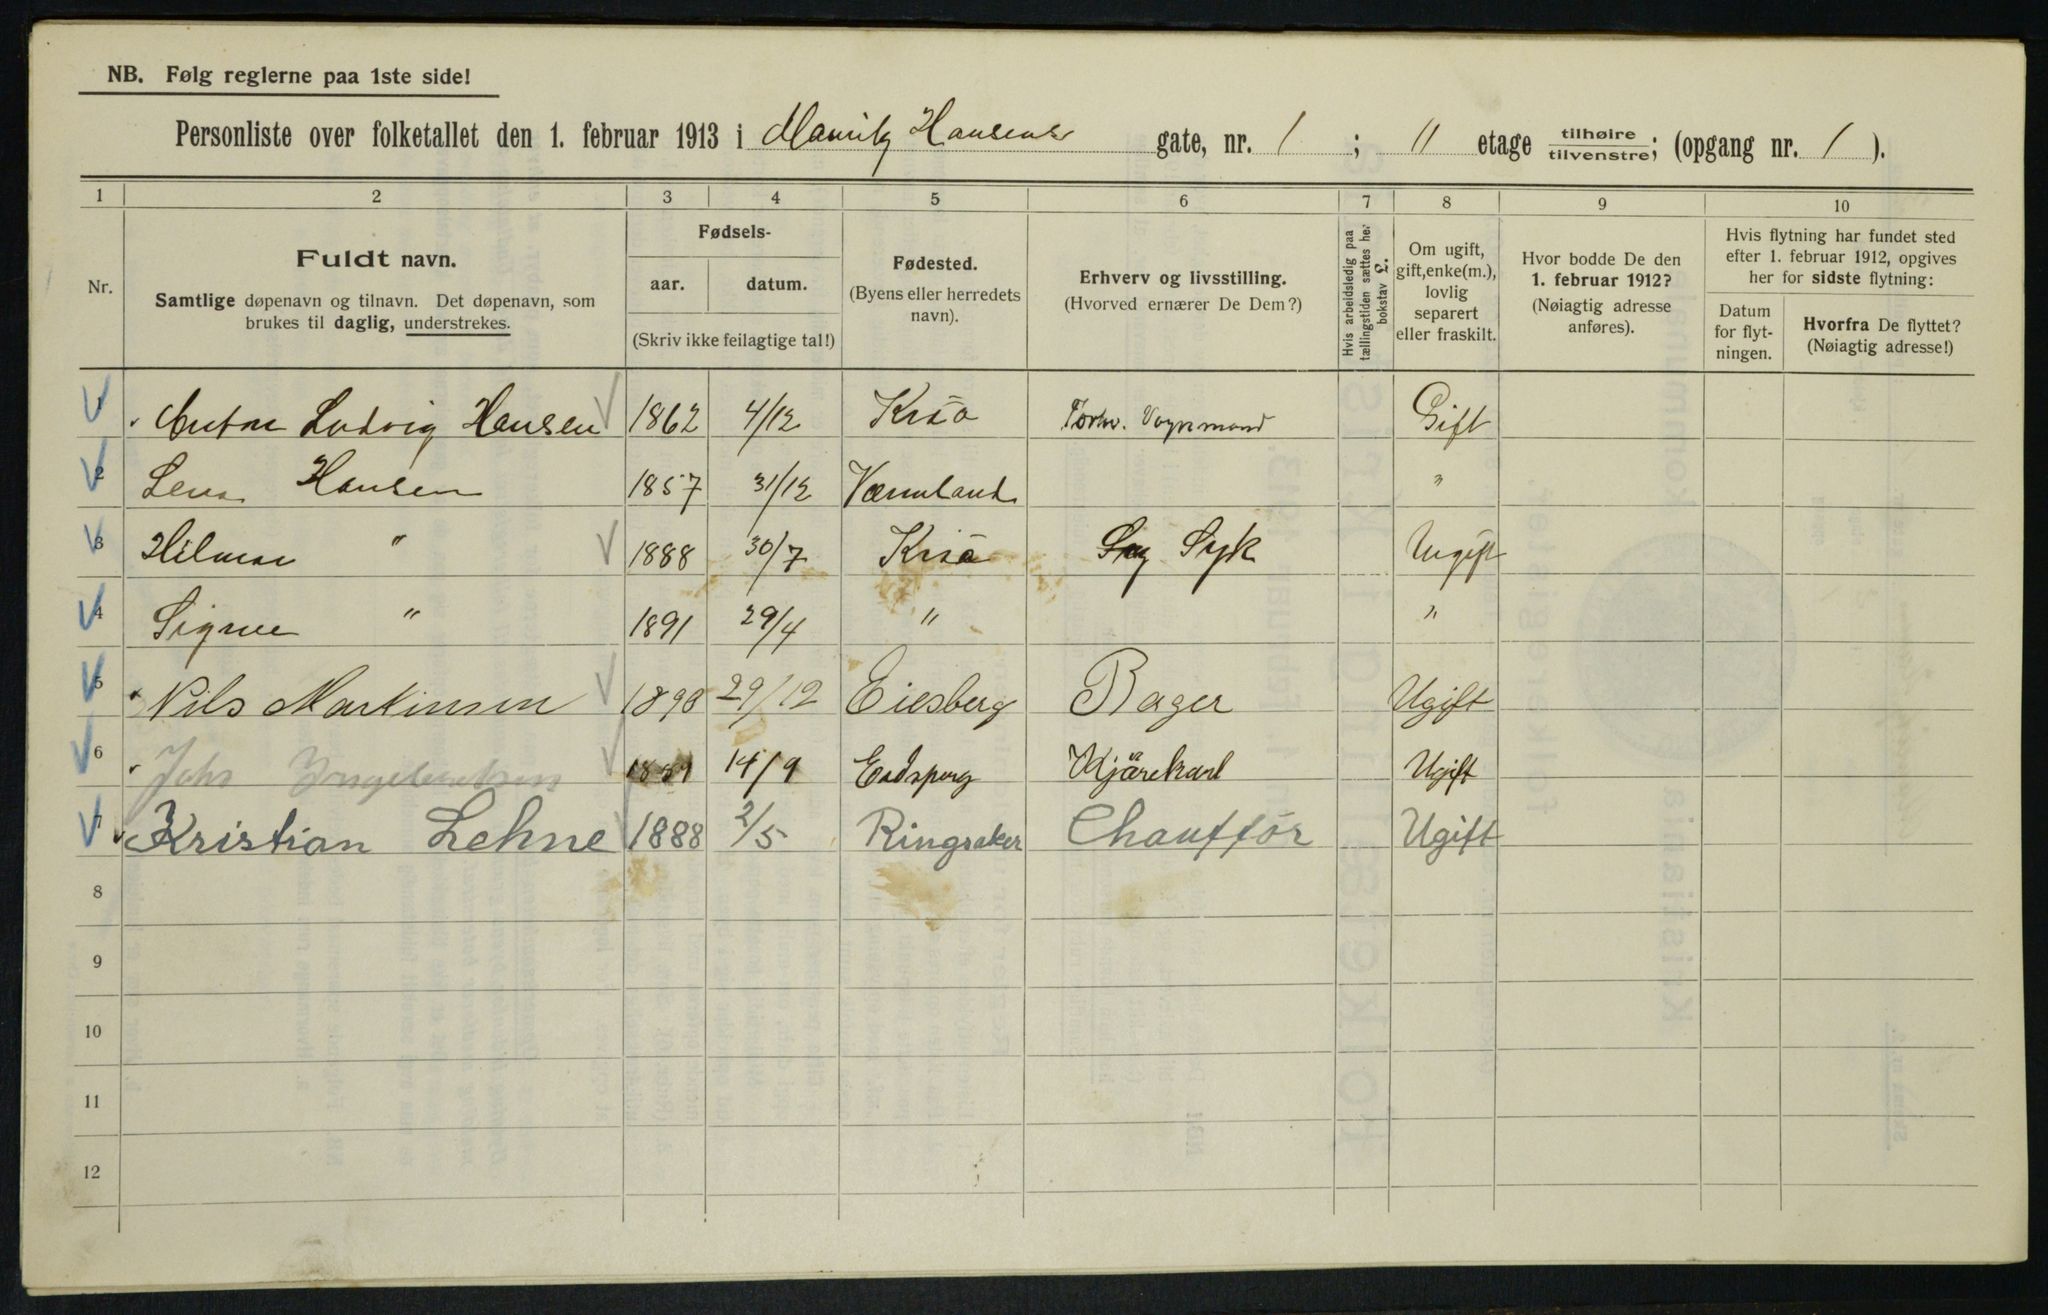 NB. Følg reglerne paa 1ste side!
Personliste over folketallet den 1. februar 1913 i Mauritz Hansens gate, nr. 1 ; 11 etage tilhøire/tilvenstre; (opgang nr. 1 ).
1 2 3 4 5 6 7 8 9 10
Nr.
Fuldt navn.
Samtlige døpenavn og tilnavn. Det døpenavn, som
brukes til daglig, understrekes.
Fødsels-
aar. datum.
(Skriv ikke feilagtige tal!)
Fødested.
(Byens eller herredets
navn).
Erhverv og livsstilling.
(Hvorved ernærer De Dem?)
Hvis arbeidsledig paa
tællingstiden sættes her
bokstav £.
Om ugift,
gift, enke(m.),
lovlig
separert
eller fraskilt.
Hvor bodde De den
1. februar 1912?
(Nøiagtig adresse
anføres).
Hvis flytning har fundet sted
efter 1. februar 1912, opgives
her for sidste flytning:
Datum
for flyt-
ningen.
Hvorfra De flyttet?
(Nøiagtig adresse!)
1 Anton Ludvig Hansen 1862 4/12 Kr̄a Gift
2 Lena Hansen 1857 31/12 Værmland "
3 Hilma " 1888 30/7 Kr̄a Syk Ugift
4 Signe " 1891 29/4 " "
5 Nils Martinsen 1890 29/12 Eidsberg Bager Ugift
6 Joh 14/9 Eidsperg Kjörekarl Ugift
7 Kristian Lehne 1888 2/5 Ringsaker Chauffør Ugift
8
9
10
11
12